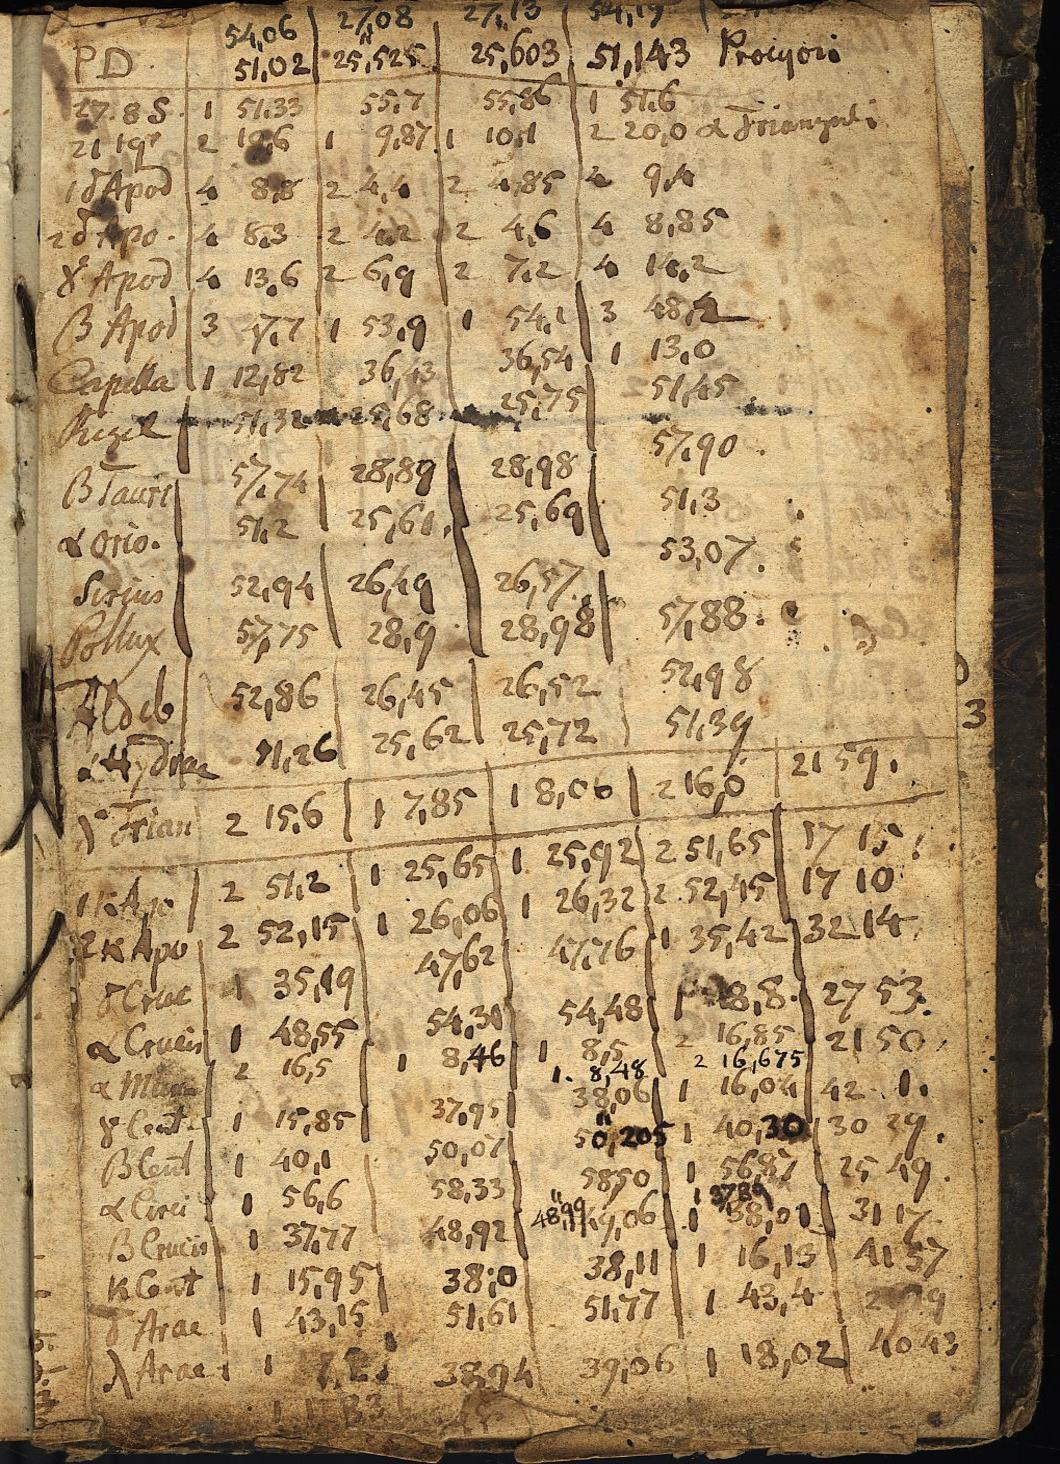 54,06 27,08 27,13 54,19
PD. 51,02 25,525 25,603 51,143 Procyon
27.8 S. 1 51.33 55.7 55,86 1 51,6
21 1 2 6 1 9,87 1 10,1 2 20,0 α Trianguli
1 δ Apod 4 8,8 2 4,4 2 4,85 4 9,4
2 δ Apo. 4 8,3 2 4,2 2 4,6 4 8,85
γ Apod 4 13,6 2 6,9 2 7,2 4 14,2
β Apod 3 47,7 1 53,9 1 54,1 3 48,2
Capella 1 12,82 36,43 36,54 1 13,0
Rigel 51,32 25,68 25,75 51,45
β Tauri 57,74 28,89 28,98 57,90
α Orio. 51,2 25,61 25,69 51,3
Sirius 52,94 26,49 26,57 53,07.
Pollux 57,75 28,9 28,98 57,88
Aldeb 52,86 26,45 26,52 52,98
α Hydrae 51,26 25,62 25,72 51,39
γ Trian 2 15,6 1 7,85 1 8,06 2 16,0 21 59.
1 κ Apo 2 51,2 1 25,65 1 25,92 2 51,65 17 15
2 κ Apo 2 52,15 1 26,06 1 26,32 2 52,45 17 10
δ Cruc 1 35,19 47,62 47,76 1 35,42 32 14
α Crucis 1 48,55 54,30 54,48 1 8,8 27 53.
α 2 16,5 1 8,46 1 8,5 2 16,85 21 50
1. 8,48 2 16,675
γ Cent. 1 15,85 37,95 38,06 1 16,04 42 1.
β Cent 1 40,1 50,07 50,205 1 40,30 30 29.
α Circi 1 56,6 58,33 58,50 1 56,87 25 49.
β Crucis 1 37,77 48,92 48,99 49,06 1 37,89 38,01 31 17
κ Cent 1 15,95 38,0 38,11 1 16,13 41 57
δ Arae 1 43,15 51,61 51,77 1 43,4
λ Arae 1 38,94 39,06 1 18,02 40 43
3